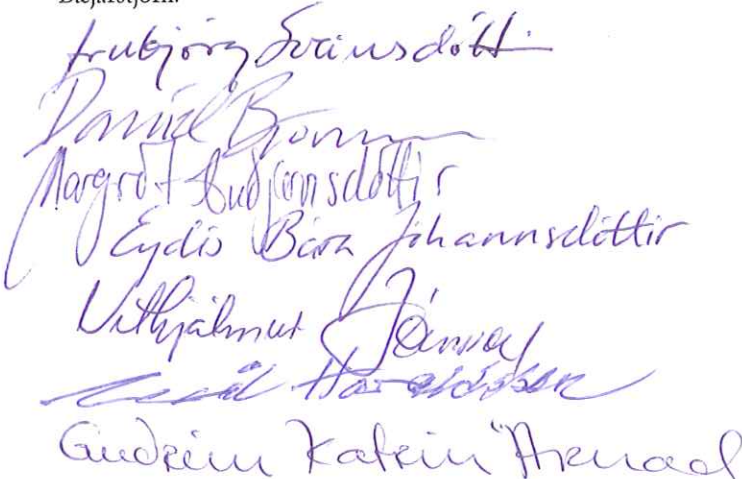 Bæjarstjórn.
Arnbjörg Sveinsdótt.
Daníel Björnsson
Margrét Guðjónsdóttir
Eydís Bára Jóhannsdóttir
Vilhjálmur Jónsson
Haraldsson
Guðrún Katrín Árnad